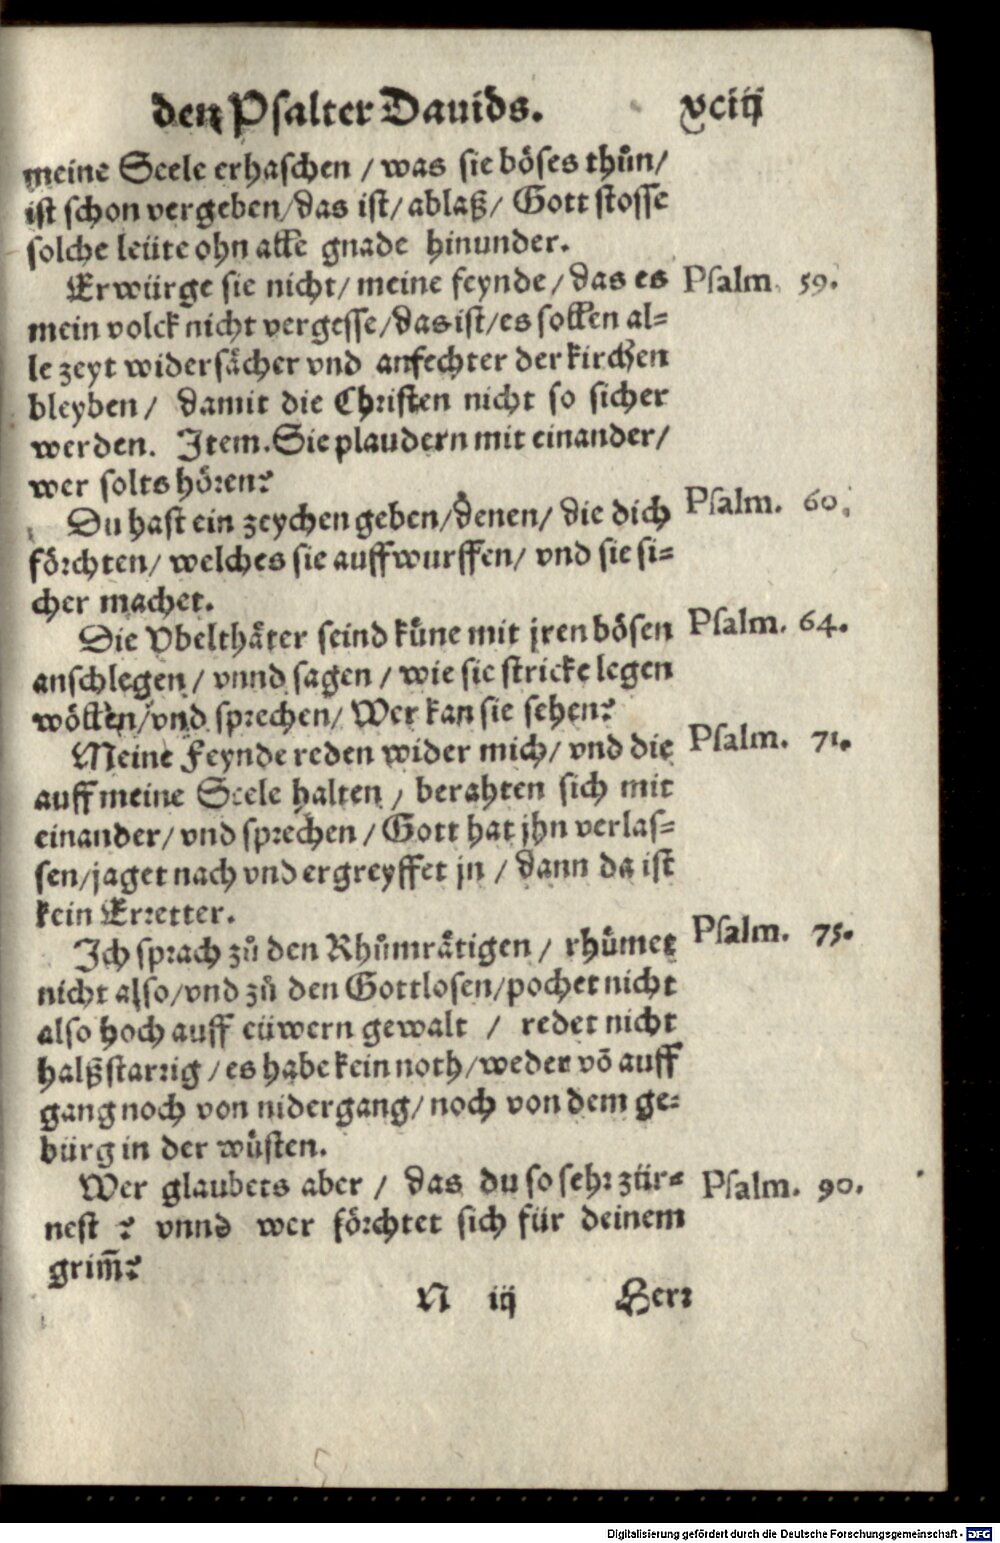 den Psalter Dauids. xciij
meine Seele erhaschen / was sie böses thůn/
ist schon vergeben/das ist/ ablaß/ Gott stosse
solche leüte ohn alle gnade hinunder.
Erwürge sie nicht/ meine feynde/ das es Psalm. 59.
mein volck nicht vergesse/das ist/es sollen al=
le zeyt widersächer vnd anfechter der kirchen
bleyben/ damit die Christen nicht so sicher
werden. Item. Sie plaudern mit einander/
wer solts hören?
Du hast ein zeychen geben/denen/ die dich Psalm. 60.
förchten/ welches sie auffwurffen/ vnd sie si=
cher machet.
Die Vbelthäter seind küne mit jren bösen Psalm. 64.
anschlegen/ vnnd sagen / wie sie stricke legen
wöllen/vnd sprechen/ Wer kan sie sehen?
Meine Feynde reden wider mich/ vnd die Psalm. 71.
auff meine Seele halten / berahten sich mit
einander/ vnd sprechen / Gott hat jhn verlas=
sen/jaget nach vnd ergreyffet jn / dann da ist
kein Erretter.
Ich sprach zů den Rhůmrätigen / rhůmet Psalm. 75.
nicht also/vnd zů den Gottlosen/pochet nicht
also hoch auff eüwern gewalt / redet nicht
halßstarrig / es habe kein noth/weder võ auff
gang noch von nidergang/ noch von dem ge=
bürg in der wůsten.
Wer glaubets aber / das du so sehr zür= Psalm. 90.
nest ? vnnd wer förchtet sich für deinem
grim̃?
N iij Herr
Digitalisierung gefördert durch die Deutsche Forschungsgemeinschaft - DFG